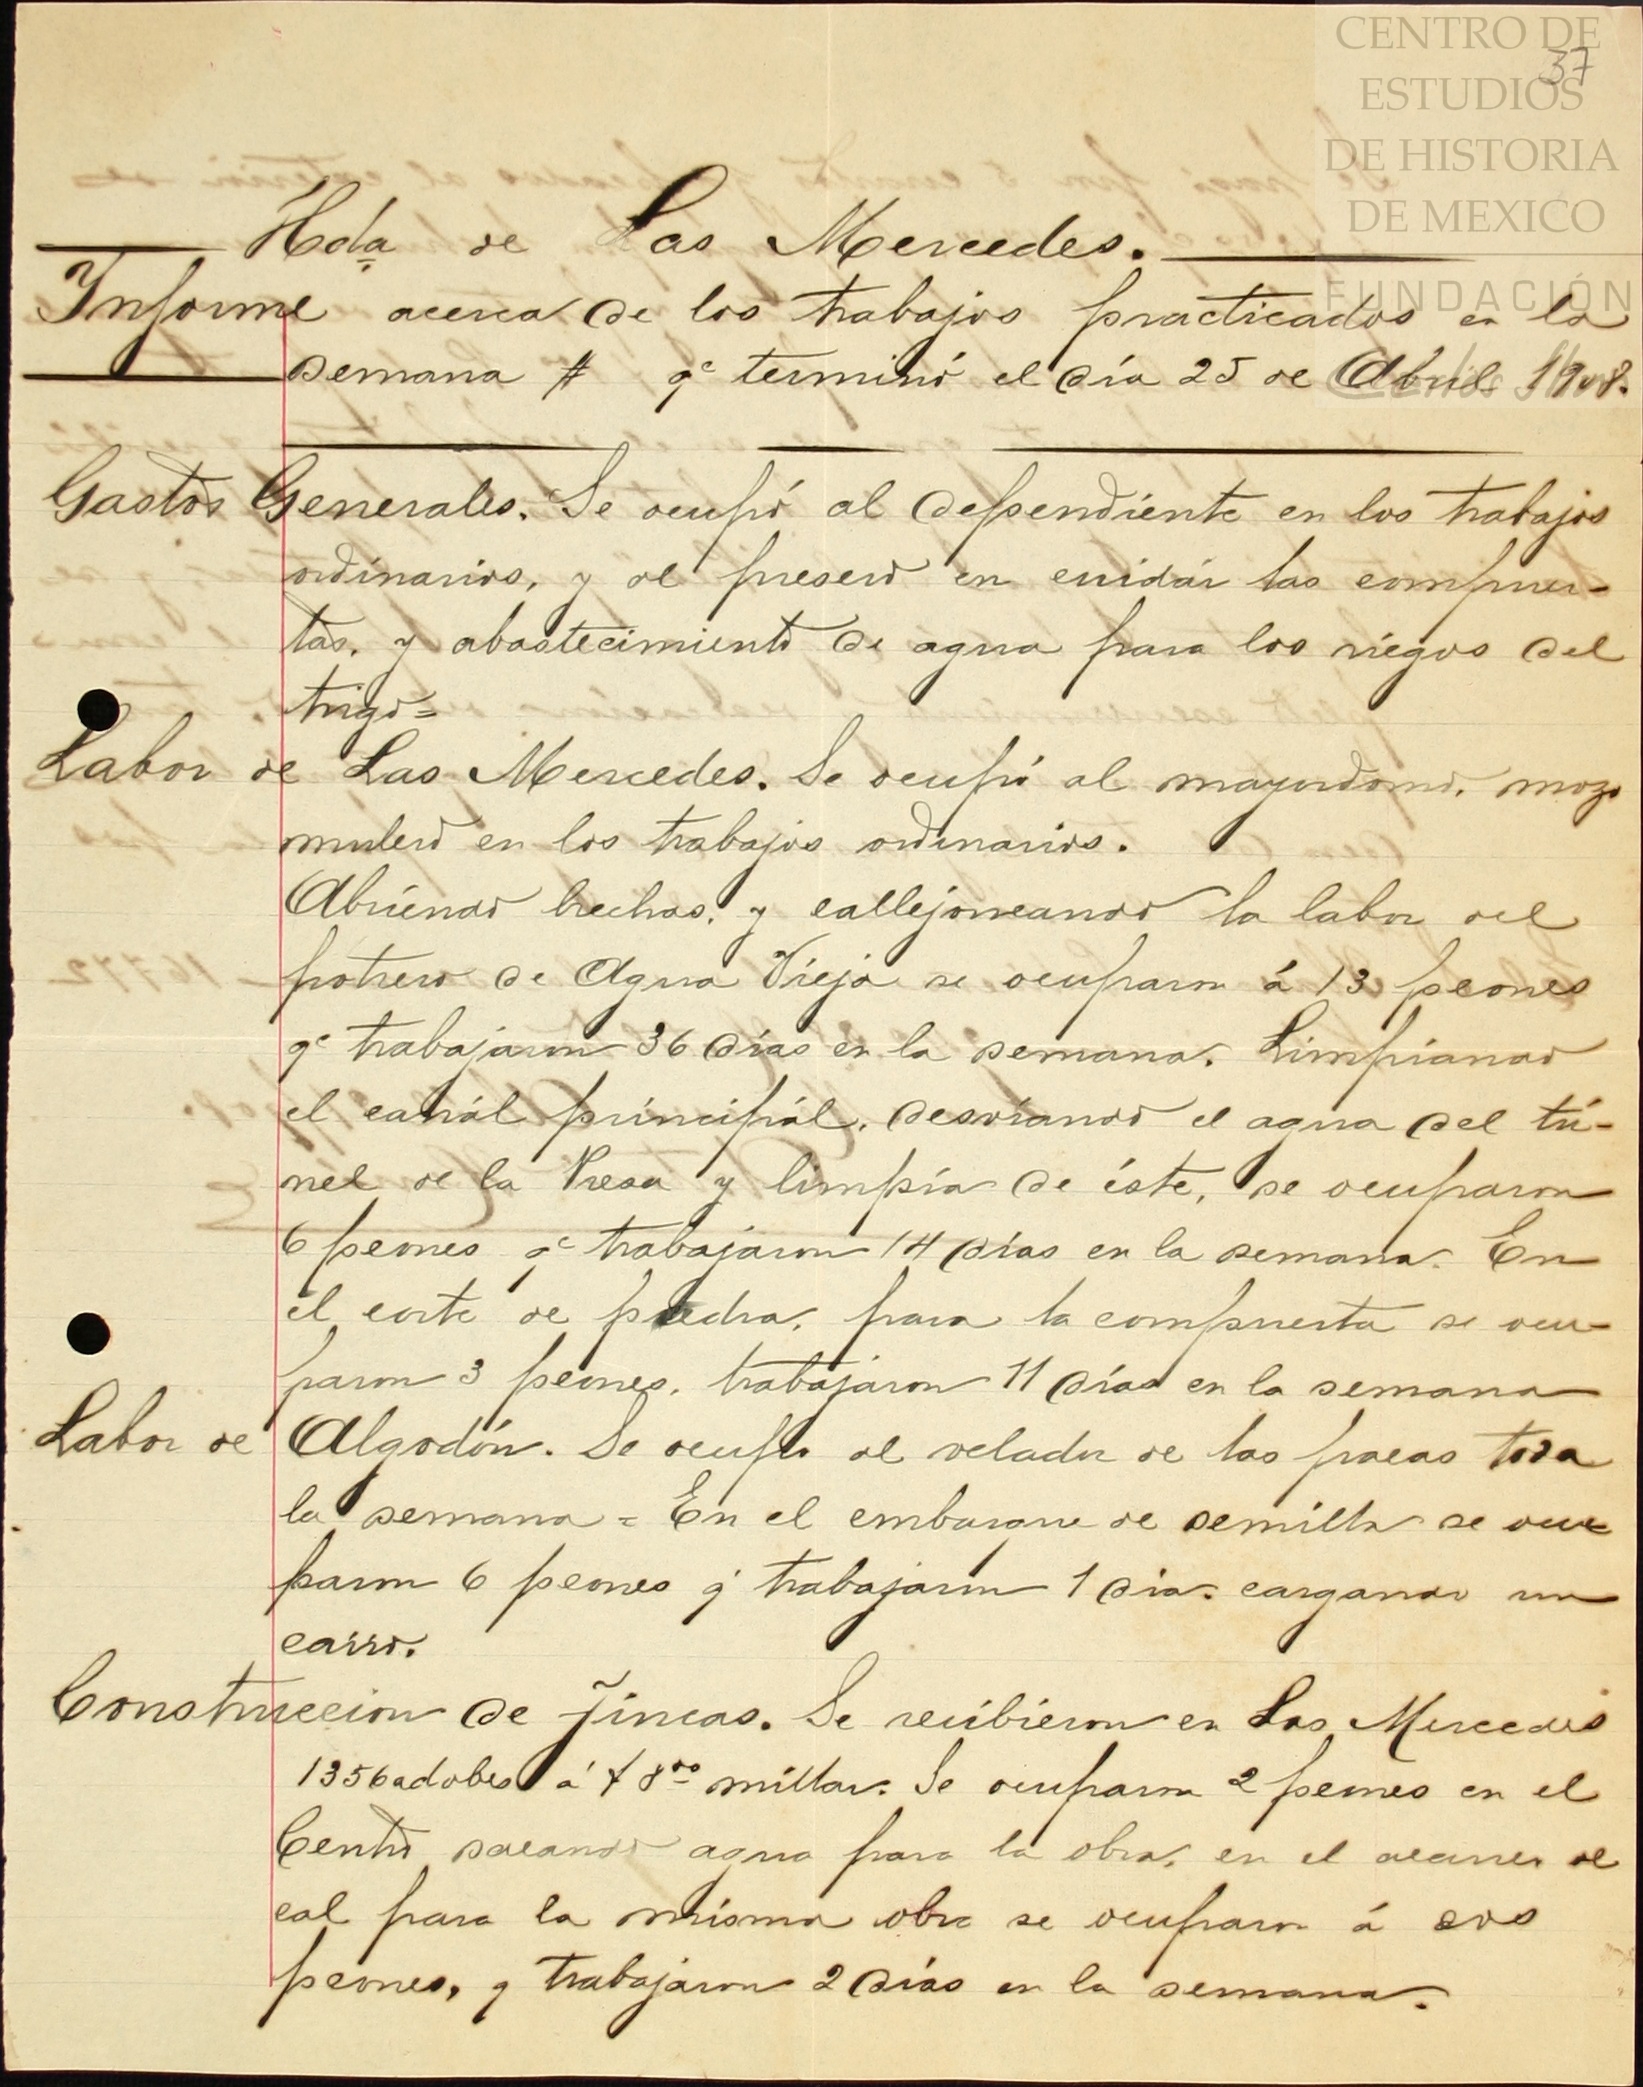 CENTRO DE
ESTUDIOS
DE HISTORIA
DE MEXICO
FUNDACIÓN
37
Hda de Las Mercedes.
Informe acerca de los trabajos practicados en la
semana # qe terminó el día 25 de Abril 1908.
Gastos Generales. Se ocupó al dependiente en los trabajos
ordinarios, y al presero en cuidár las compuer-
tas, y abastecimiento de agua para los riegos del
trigo=
Labor de Las Mercedes. Se ocupó al mayordomo, mozo
mulero en los trabajos ordinarios.
Abriendo brechas, y callejoneando la labor del
potrero de Agua Vieja se ocuparon á 13 peones
qe trabajaron 36 días en la semana. Limpiando
el canál principál, desviando el agua del tú-
nel de la Presa y limpía de éste, se ocuparon
6 peones qe trabajaron 14 días en la semana. En
el corte de piedra, para la compuerta se ocu-
paron 3 peones, trabajaron 11 días en la semana
Labor de Algodón. Se ocupó al velador de las pacas toda
la semana = En el embarque de semilla se ocu
paron 6 peones q trabajaron 1 día. cargando un
carro.
Construccion de Fincas. Se recibieron en Las Mercedes
1356 adobes á $ 8.00 millar. Se ocuparon 2 peones en el
Centro sacando agua para la obra, en el acarreo de
cal para la misma obra se ocuparon á dos
peones, q trabajaron 2 días en la semana.